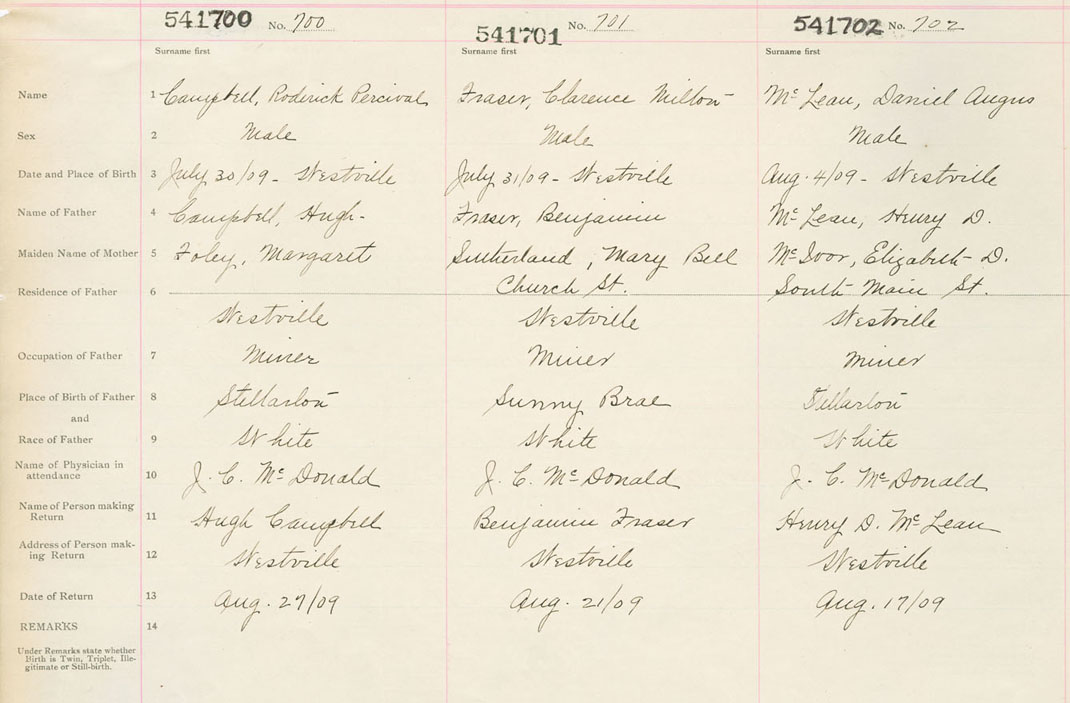 541700 No. 700 541701 No. 701 541702 No. 702
Surname first Surname first Surname first
Name 1 Campbell, Roderick Percival Fraser, Clarence Milton Mc Lean, Daniel Angus
Sex 2 Male Male Male
Date and Place of Birth 3 July 30/09 - Westville July 31/09 - Westville Aug. 4/09 - Westville
Name of Father 4 Campbell, Hugh - Fraser, Benjamin Mc Lean, Henry D.
Maiden Name of Mother 5 Foley, Margaret Sutherland, Mary Bell Mc Ivor, Elizabeth D.
Residence of Father 6 Church St. South Main St.
Westville Westville Westville
Occupation of Father 7 Miner Miner Miner
Place of Birth of Father 8 Stellarton Sunny Brae Stellarton
and
Race of Father 9 White White White
Name of Physician in
attendance 10 J. C. Mc Donald J. C. Mc Donald J. C. Mc Donald
Name of Person making
Return 11 Hugh Campbell Benjamin Fraser Henry D. Mc Lean
Address of Person mak-
ing Return 12 Westville Westville Westville
Date of Return 13 Aug. 27/09 Aug. 21/09 Aug. 17/09
REMARKS 14
Under Remarks state whether
Birth is Twin, Triplet, Ille-
gitimate or Still-birth.